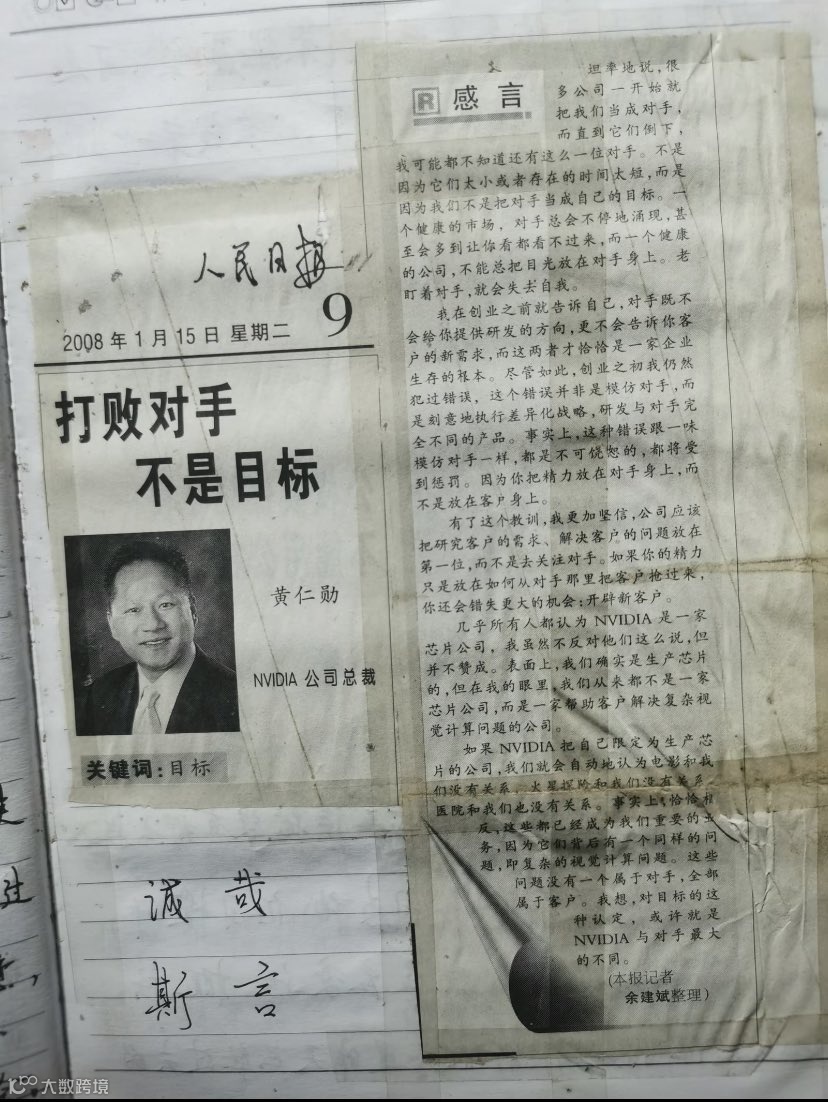 人民日报
9
2008年1月15日 星期二
打败对手
不是目标
黄仁勋
NVIDIA 公司总裁
关键词:目标
诚哉
斯言
R 感言
坦率地说,很
多公司一开始就
把我们当成对手,
而直到它们倒下,
我可能都不知道还有这么一位对手。不是
因为它们太小或者存在的时间太短,而是
因为我们不是把对手当成自己的目标。一
个健康的市场,对手总会不停地涌现,甚
至会多到让你看都看不过来,而一个健康
的公司,不能总把目光放在对手身上。老
盯着对手,就会失去自我。
我在创业之前就告诉自己,对手既不
会给你提供研发的方向,更不会告诉你客
户的新需求,而这两者才恰恰是一家企业
生存的根本。尽管如此,创业之初我仍然
犯过错误,这个错误并非是模仿对手,而
是刻意地执行差异化战略,研发与对手完
全不同的产品。事实上,这种错误跟一味
模仿对手一样,都是不可饶恕的,都将受
到惩罚。因为你把精力放在对手身上,而
不是放在客户身上。
有了这个教训,我更加坚信,公司应该
把研究客户的需求、解决客户的问题放在
第一位,而不是去关注对手。如果你的精力
只是放在如何从对手那里把客户抢过来,
你还会错失更大的机会:开辟新客户。
几乎所有人都认为 NVIDIA 是一家
芯片公司,我虽然不反对他们这么说,但
并不赞成。表面上,我们确实是生产芯片
的,但在我的眼里,我们从来都不是一家
芯片公司,而是一家帮助客户解决复杂视
觉计算问题的公司。
如果 NVIDIA 把自己限定为生产芯
片的公司,我们就会自动地认为电影和我
们没有关系,火星探险和我们没有关系,
医院和我们也没有关系。事实上,恰恰相
反,这些都已经成为我们重要的业
务,因为它们背后有一个同样的问
题,即复杂的视觉计算问题。这些
问题没有一个属于对手,全部
属于客户。我想,对目标的这
种认定,或许就是
NVIDIA 与对手最大
的不同。
(本报记者
余建斌整理)
大数跨境